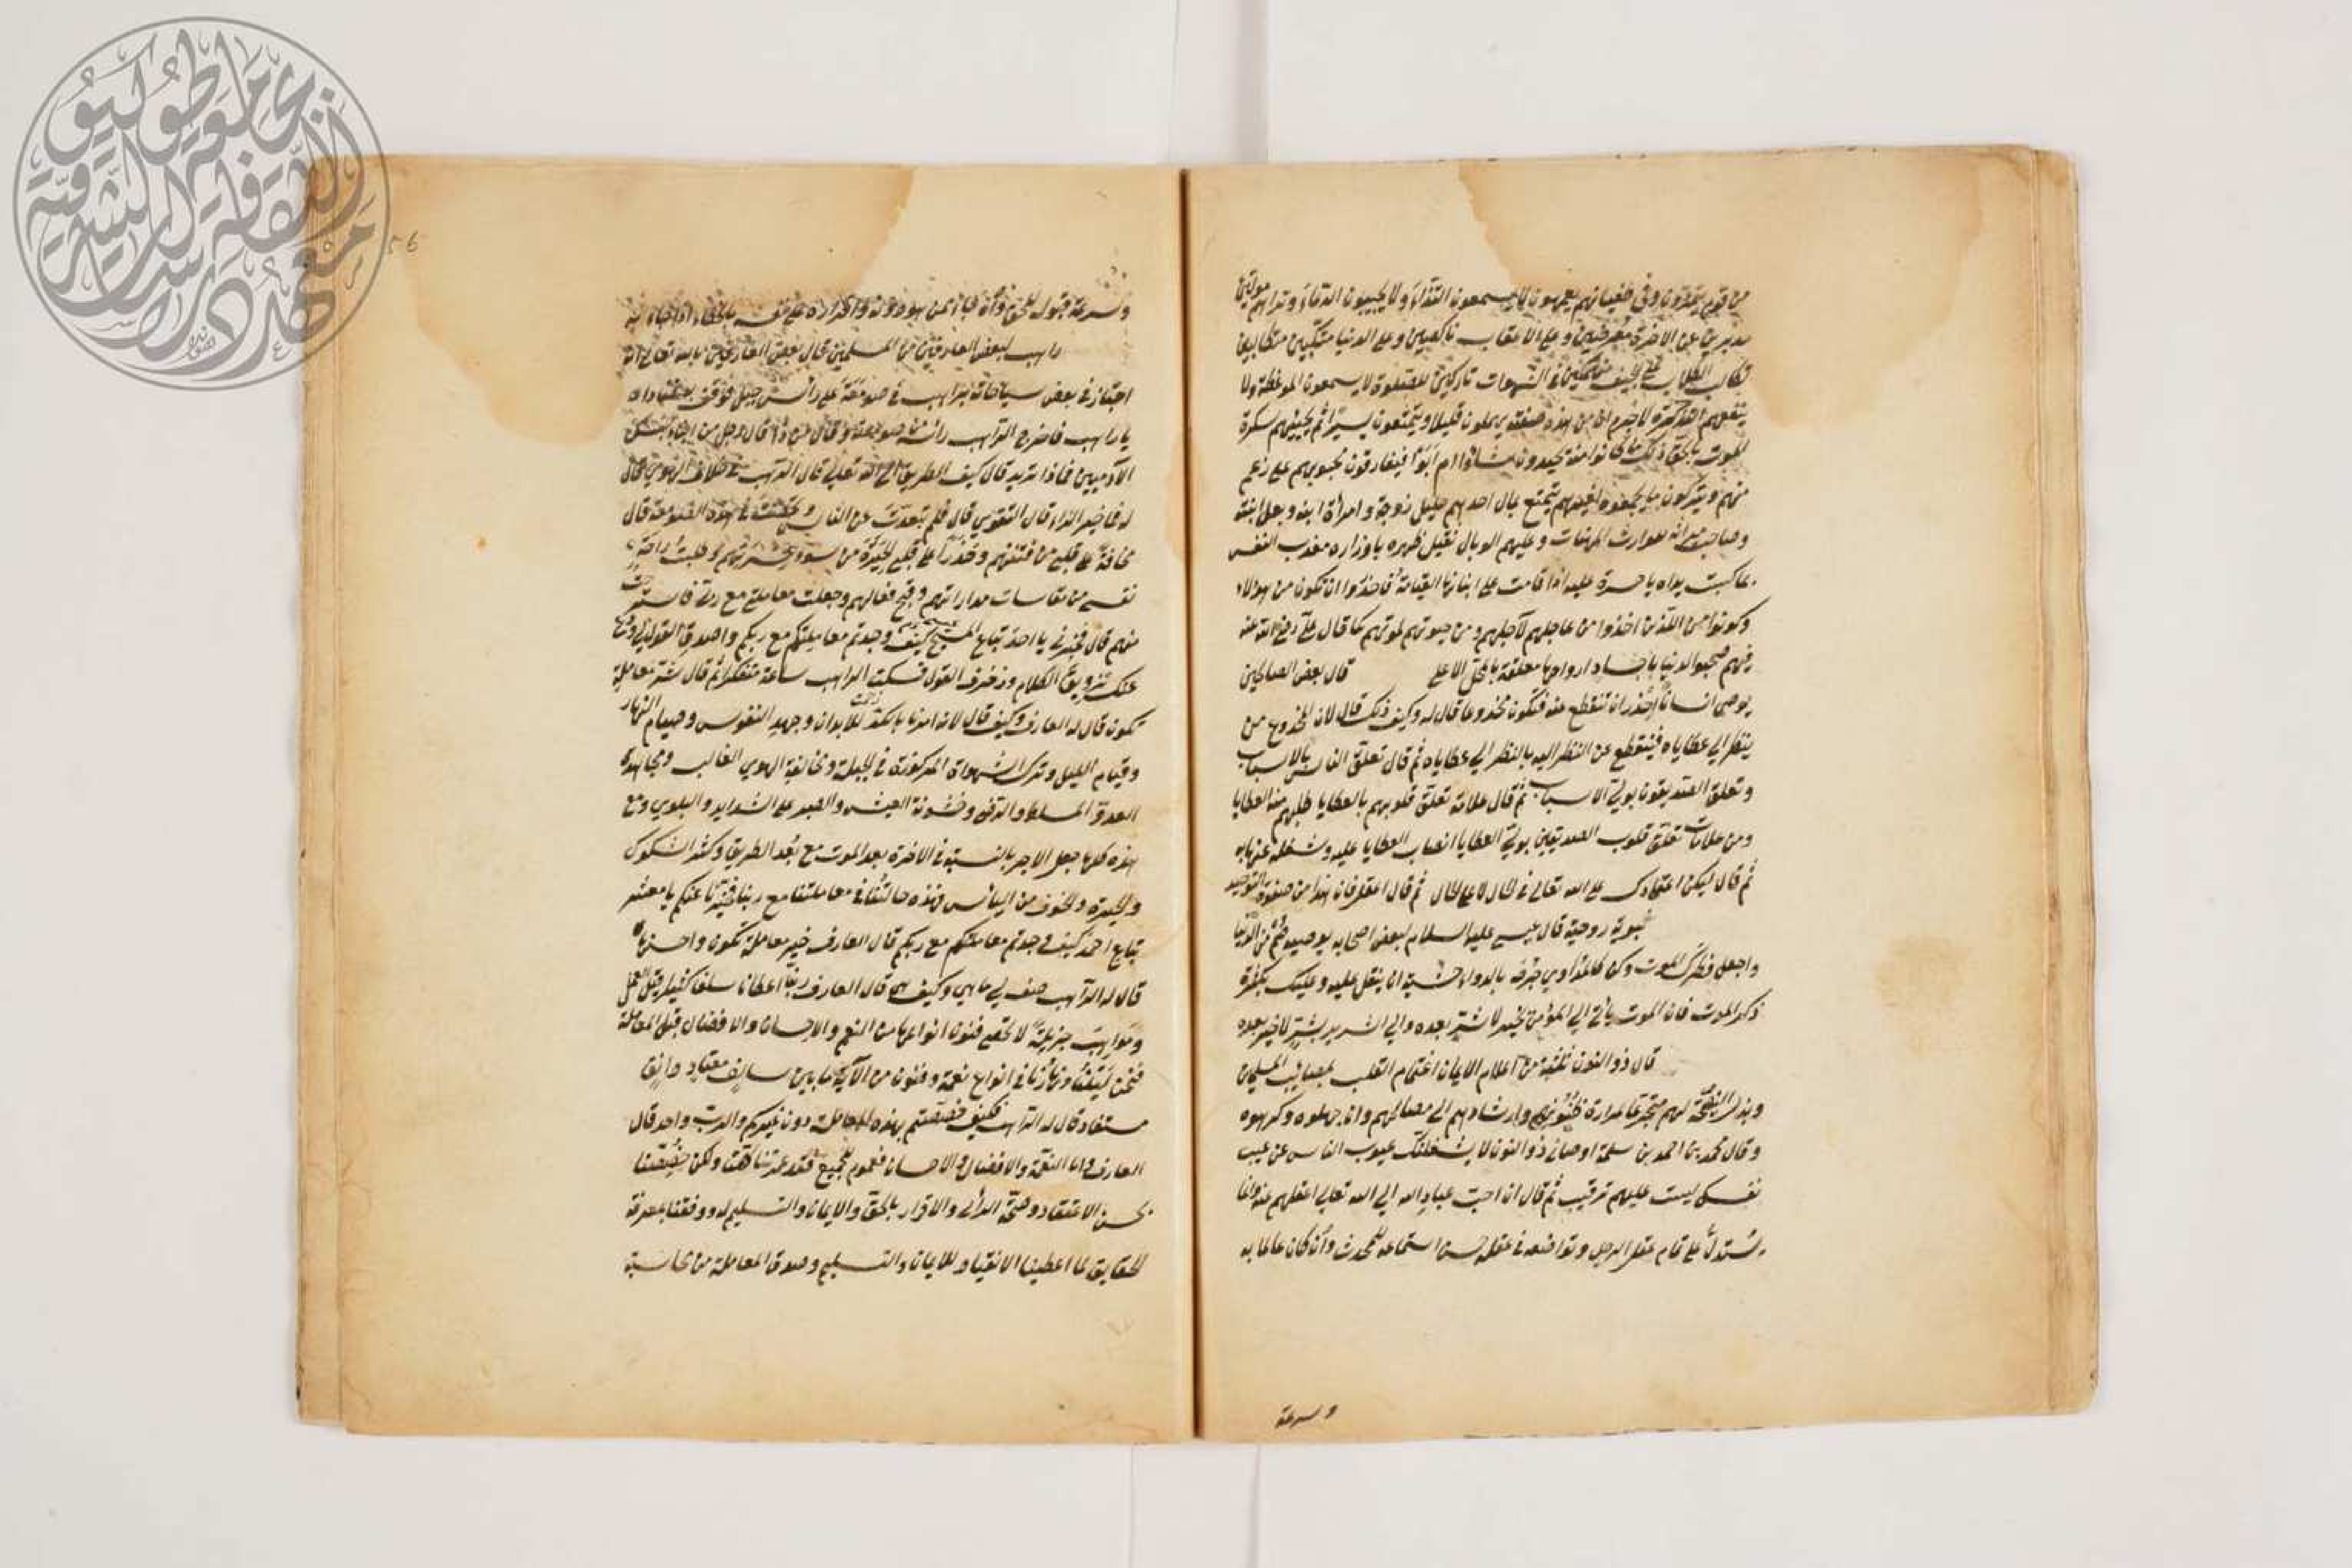 من قوم يتمردون وفي طغيانهم يعمهون لا يسمعون النداء ولا يجيبون الدعاء وتراهم مولين
مدبرين عن الاخرة معرضين وعلى الاعقاب ناكصين وعلى الدنيا متكبين متكالبين
تكالب الكلاب على الجيف منهمكين في الشهوات تاركين للصلوة لا يسمعون الموعظة ولا
ينفعهم التذكرة لا خير ان من هذه صفته يمهلون قليلا ويتمتعون يسيرا ثم يجيئهم سكرة
الموت بالحق ذلك ما كانوا منه يحيدون شاؤا ام أبوا فيفارقون محبوبهم على رغم
منهم ويتركون ما يجمعوه لغيرهم يتمتع بمال احدهم حليل زوجته وامرأة ابنه وبعل ابنته
وصاحب ميراثه للوارث المهنات وعليهم الوبال ثقيل ظهره باوزاره معذب النفس
بما كسبت يداه يا حسرة عليه اذا قامت على ابنائها القيامة فاحذروا ان تكون من هؤلاء
وكونوا من الذين اخذوا من عاجلهم لآجلهم ومن حيوتهم لموتهم كما قال علي رضي الله عنه
فيهم صحبوا الدنيا باجساد ارواحها معلقة بالمحل الاعلى قال بعض الصالحين
يوصي انسانا احذر ان تنقطع عنه فتكون مخدوعا قال له وكيف ذلك قال لان المخدوع من
ينظر الى عطاياه فينقطع عن النظر اليه بالنظر الى عطاياه ثم قال تعلق الناس بالاسباب
وتعلق الصديقون بولي الاسباب ثم قال علامة تعلق قلوبهم بالعطايا طلبهم منه العطايا
ومن علامات تعلق قلوب الصديقين بولي العطايا انصباب العطايا عليه وشغله عنها به
ثم قال ليكن اعتمادك على الله تعالى في الحال لا على الحال ثم قال اعقل فان هذا من صفوة التوحيد
نبوية روحية قال عيسى عليه السلام لبعض اصحابه يوصيه صم من الدنيا
واجعل فطرك الموت وكن كالمداوي جرحه بالدواء خشية ان ينقل عليه وعليك بكثرة
ذكر الموت فان الموت يأتي الى المؤمن بخير لا شر بعده والى الشرير بشر لا خير بعده
قال ذو النون ثلثة من اعلام الايمان اغتمام القلب بمصائب المسلمين
وبذل النصيحة لهم متجرعا لمرارة ظنونهم وارشادهم الى مصالحهم وان جهلوه وكرهوه
وقال محمد بن احمد بن سلمة اوصاني ذو النون لا يشغلنك عيوب الناس عن عيب
نفسك لست عليهم برقيب ثم قال ان احب عباد الله الى الله تعالى اعقلهم عنه وانما
يستدل على تمام عقل الرجل وتواضعه في عقله حسن استماعه للمحدث وان كان عالما به
وسرعة
56
وسرعة قبوله للحق وان جاء ممن هو دونه واقراره على نفسه بالخطاء اذا جاء به
راهب لبعض العارفين من المسلمين قال بعض العارفين بالله تعالى انه
اجتاز في بعض سياحاته براهب في صومعة على رأس جبل فوقف بحذاه
يا راهب فاخرج الراهب رأسه من صومعته وقال من ذا قال رجل من ابناء جنسك
الآدميين فماذا تريد قال كيف الطريق الى الله تعالى قال الراهب في خلاف الهوى قال
له فما خير الزاد قال التقوى قال فلم تبعدت عن الناس وتحصنت في هذه الصومعة قال
مخافة على قلبي من فتنتهم وحذرا على قلبي الحيرة من سوء عشرتهم وطلبت راحة
نفسي من مقاسات مداراتهم وقبح فعالهم وجعلت معاملتي مع ربي فاسترحت
منهم قال فخبرني يا احد تباع المسيح كيف وجدتم معاملتكم مع ربكم واصدق القول لي ودع
عنك تزويق الكلام وزخرف القول فسكت الراهب ساعة متفكرا ثم قال شر معاملة
تكون قال له العارف وكيف قال لانه امرنا بالكد للابدان وجهد النفوس وصيام النهار
وقيام الليل وترك الشهوات المركوزة في الجبلة ومخالفة الهوى الغالب ومجاهدة
العدو المسلط والرضى وخشونة العيش والصبر على الشدايد والبلوى ومع
هذه كلها جعل الاجر بالنسية في الاخرة بعد الموت مع بعد الطريق وكثرة الشكوك
والحيرة والخوف من اليأس فهذه حالتنا في معاملتنا مع ربنا فخبرنا عنكم يا معشر
تباع احمد كيف وجدتم معاملتكم مع ربكم قال العارف خير معاملة تكون واحسنها
قال له الراهب صف لي ما هي وكيف هي قال العارف ربنا اعطانا سلفا كثيرا قبل العمل
ومواهب جزيلة لا تحصى فنون انواعها من النعم والاحسان والافضال قبل المعاملة
فنحن ليلتنا ونهارنا في انواع نعمة وفنون من الآية ما بين سالف معتاد وانف
مستفاد قال له الراهب فكيف خصصتم بهذه المعاملة دون غيركم والرب واحد قال
العارف اما النعمة والافضال والاحسان فعموم للجميع فقد عمتنا كلنا ولكن خصصنا
بحسن الاعتقاد وصحة الرأى والاقرار بالحق والايمان والتسليم له ووفقنا بمعرفة
الحقايق لما اعطينا الانقياد للايمان والتسليم وصدق المعاملة من محاسبة